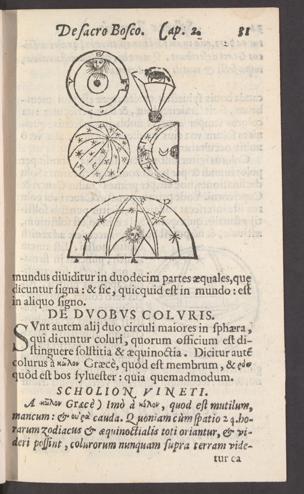 De sacro Bosco. Cap. 2. 31
mundus diuiditur in duodecim partes æquales, que
dicuntur signa: & sic, quicquid est in mundo: est
in aliquo signo.
DE DVOBVS COLVRIS.
SVnt autem alij duo circuli maiores in sphæra,
qui dicuntur coluri, quorum officium est di-
stinguere solstitia & æquinoctia. Dicitur autē
colurus à κῶλον Græcè, quòd est membrum, &
quòd est bos syluester: quia quemadmodum.
SCHOLION VINETI.
A κῶλον Græcè) Imò à κόλον, quod est mutilum,
mancum: & οὐρὰ cauda. Quoniam cùm spatio 24. ho-
rarum zodiacus & æquinoctialis toti oriantur, & vi-
deri possint, colurorum nunquam supra terram vide-
tur ea